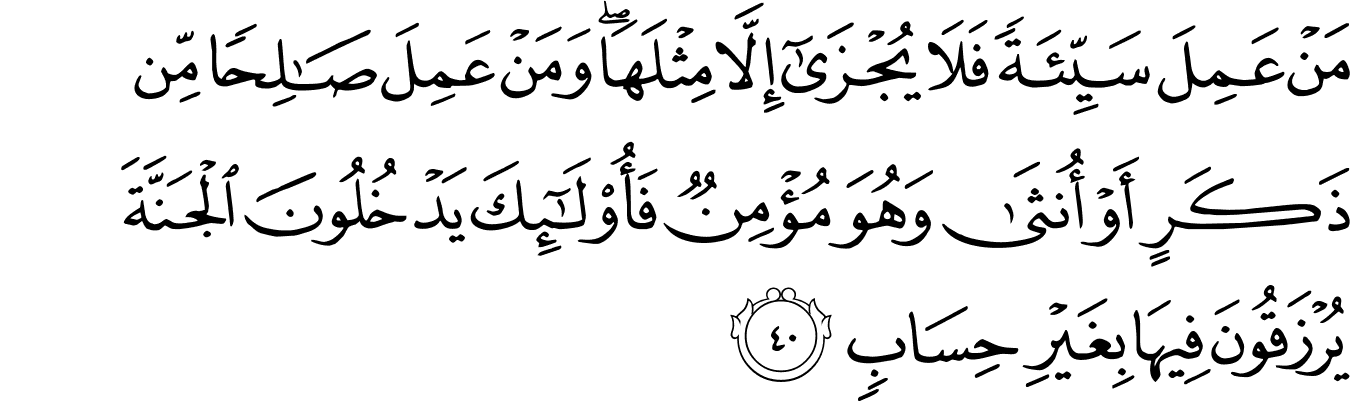 مَنْ عَمِلَ سَيِّئَةً فَلَا يُجْزَىٰٓ إِلَّا مِثْلَهَا ۖ وَمَنْ عَمِلَ صَـٰلِحًا مِّن
ذَكَرٍ أَوْ أُنثَىٰ وَهُوَ مُؤْمِنٌ فَأُو۟لَـٰٓئِكَ يَدْخُلُونَ ٱلْجَنَّةَ
يُرْزَقُونَ فِيهَا بِغَيْرِ حِسَابٍ ٤٠